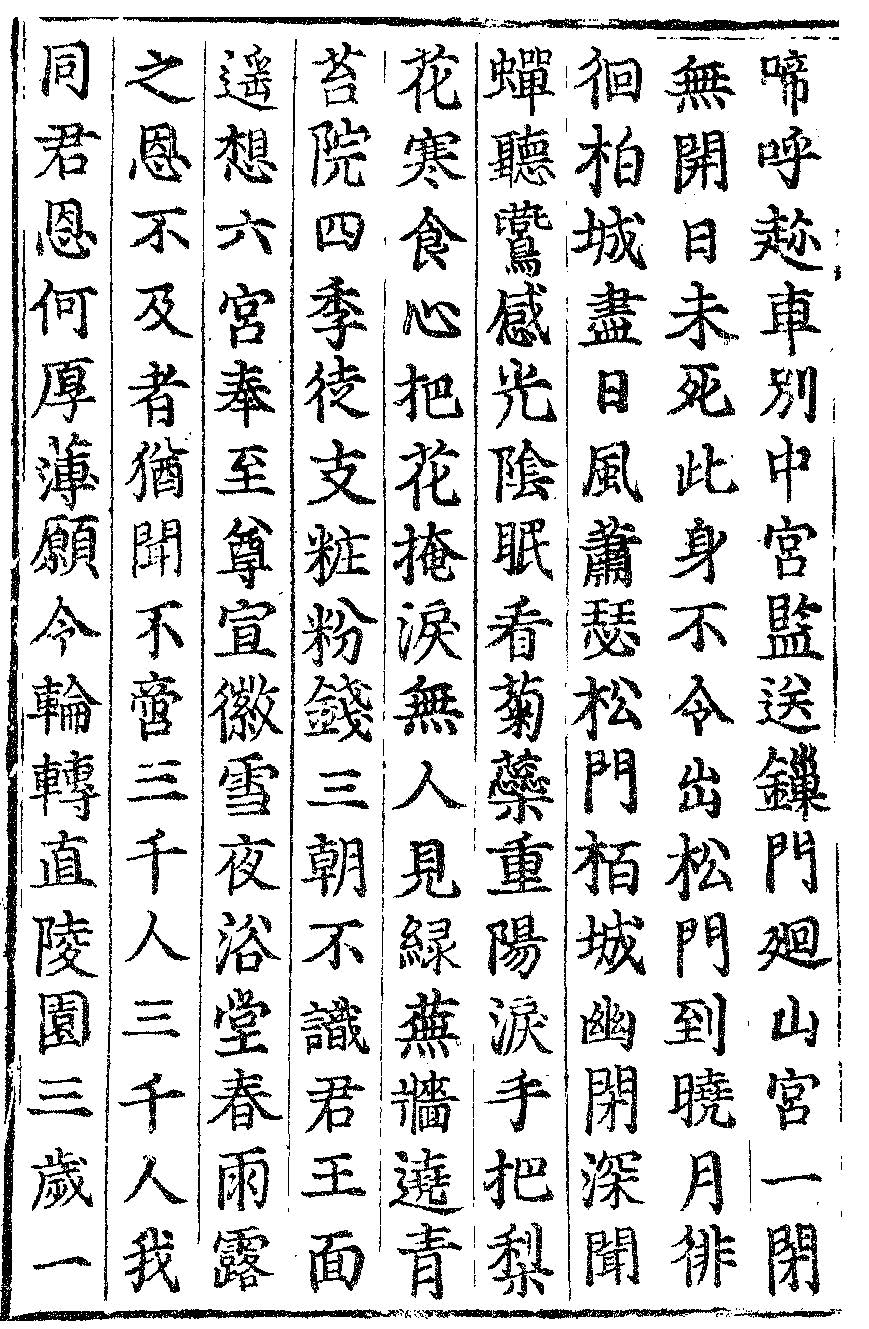 啼呼趂車別中宮監送鏁門廻山宮一閉
無開日未死此身不令出松門到曉月徘
徊柏城盡日風蕭瑟松門栢城幽閉深聞
蟬聽鷰感光陰眠看菊蘂重陽淚手把梨
花寒食心把花掩淚無人見緑蕪牆遶青
苔院四季徒支粧粉錢三朝不識君王面
遥想六宮奉至尊宣徽雪夜浴堂春雨露
之恩不及者猶聞不啻三千人三千人我
同君恩何厚薄願令輪轉直陵園三歲一